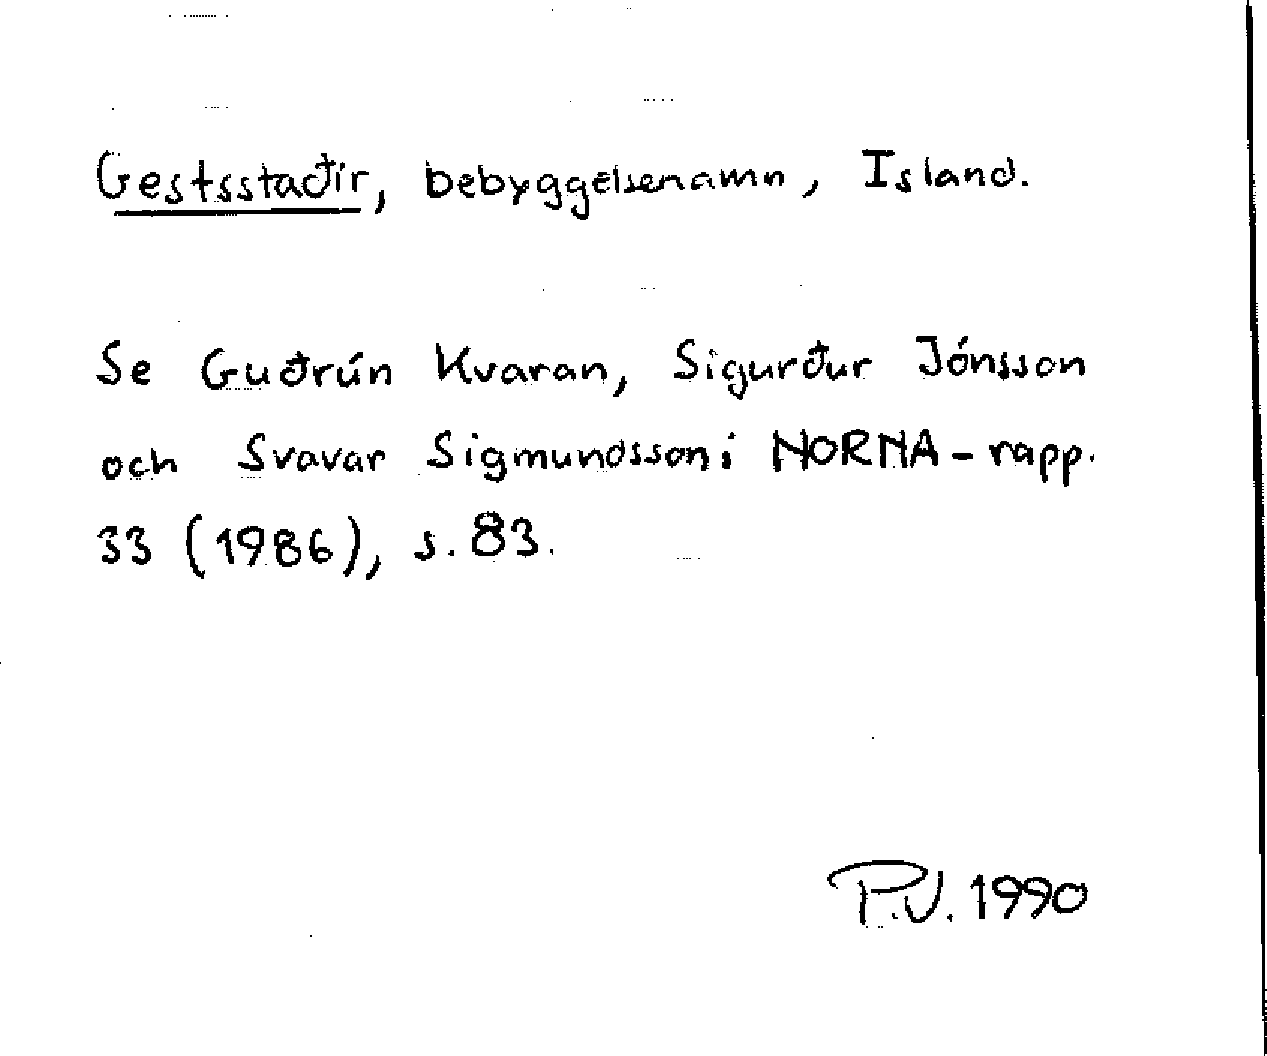 Gestsstaðir, bebyggelsenamn, Island.
Se Guðrún Kvaran, Sigurður Jónsson
och Svavar Sigmundsson i NORNA-rapp.
33 (1986), s. 83.
P.V. 1990